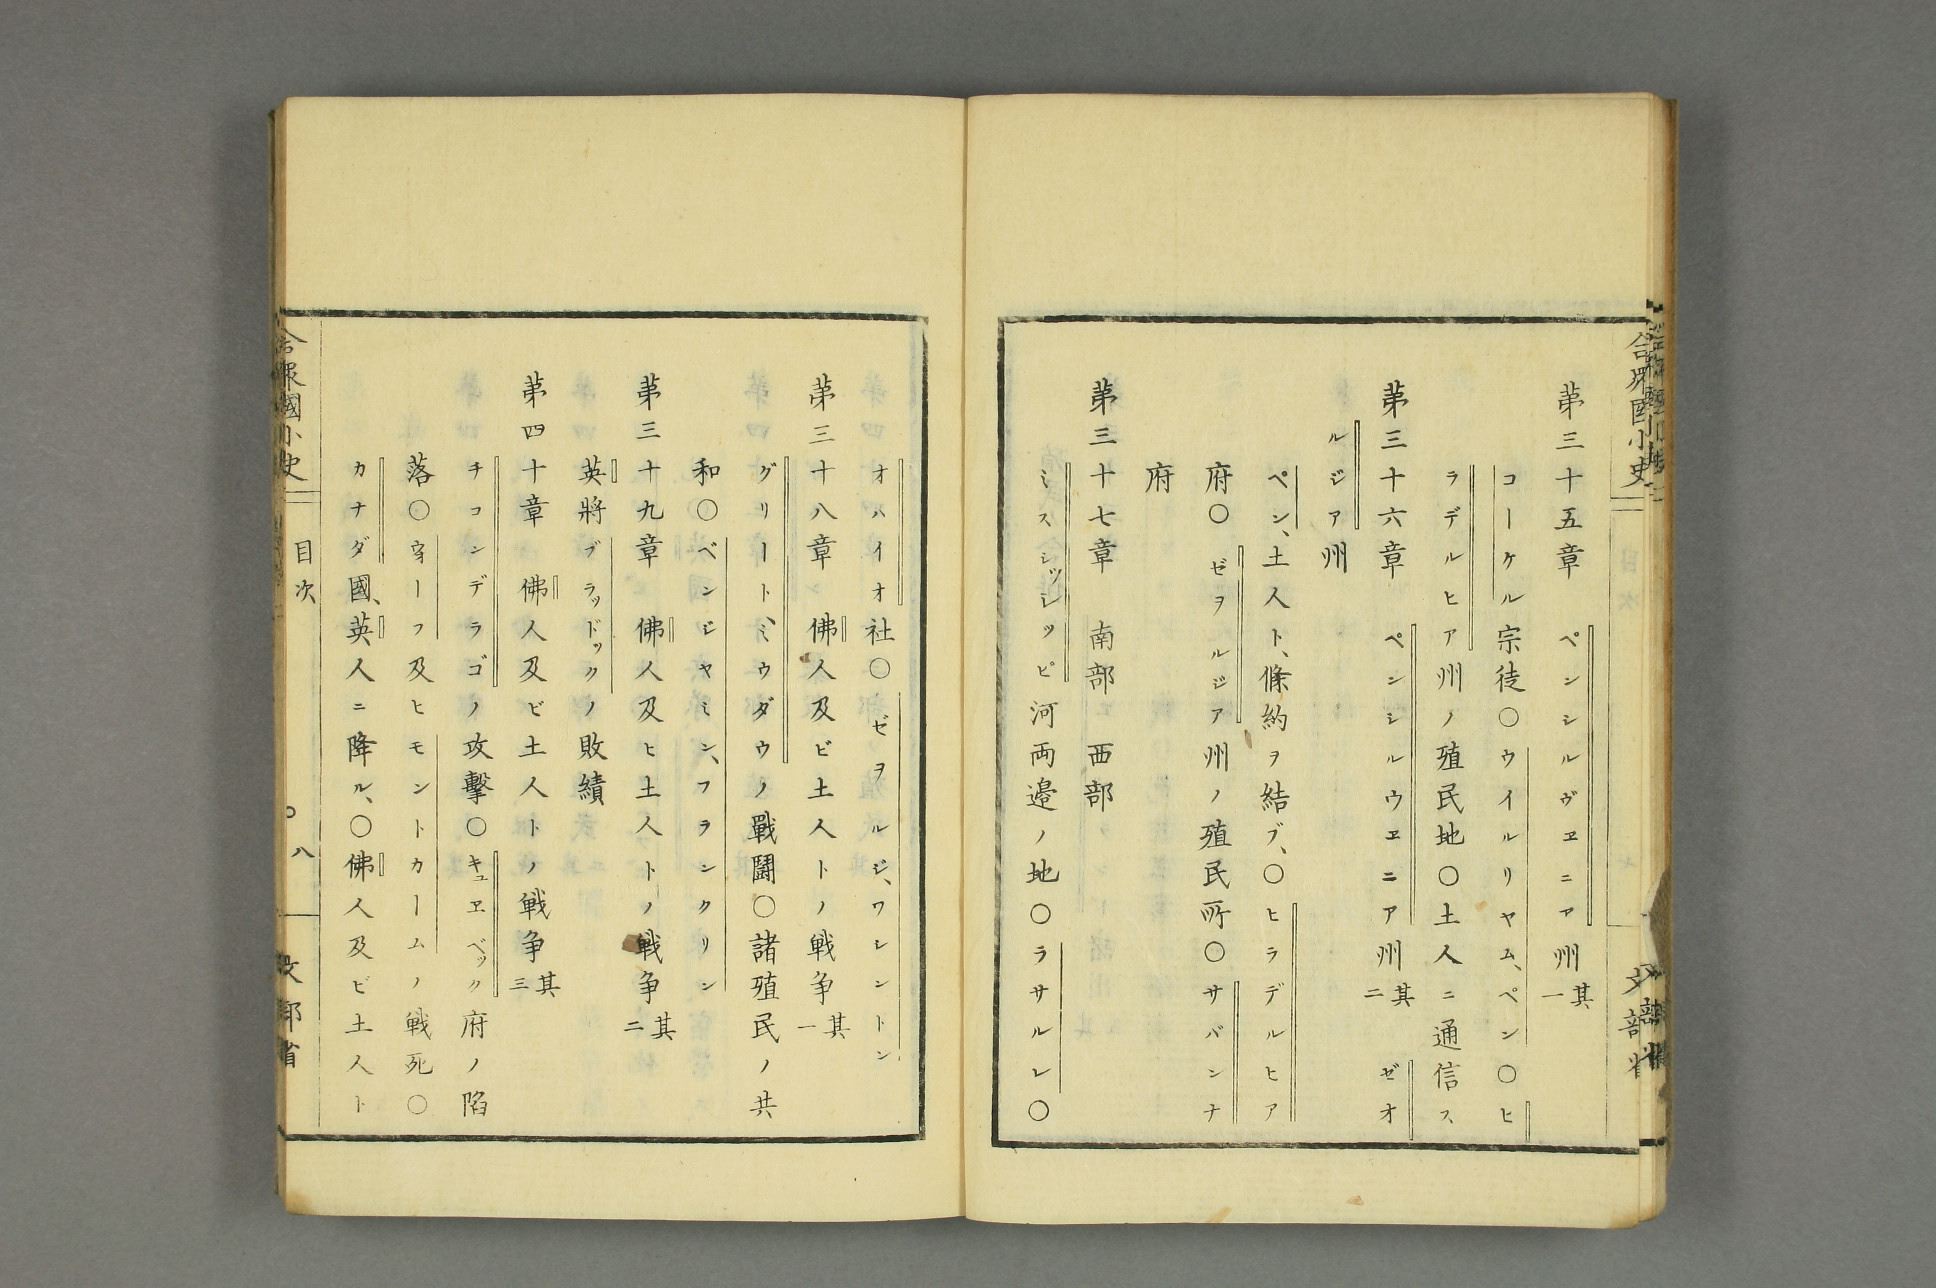 合衆國小史
文部省
第三十五章　ペンシルヴェニア州其一
コーケル宗徒〇ウイルリヤム、ペン〇ヒ
ラデルヒア州ノ殖民地〇土人ニ通信ス
第三十六章　ペンシルウエニア州其二　ゼオ
ルジア州
ペン、土人ト、條約ヲ結ブ、〇ヒラデルヒア
府〇ゼヲルジア州ノ殖民所〇サバンナ
府
第三十七章　南部　西部
ミスシッシッピ河両邉ノ地〇ラサルレ〇
オハイオ社〇ゼヲルジ、ワシントン
第三十八章　佛人及ビ土人トノ戦争其一
グリート、ミウダウノ戰鬪〇諸殖民ノ共
和〇ベンジヤミン、フランクリン
第三十九章　佛人及ヒ土人トノ戦争其二
英將ブラッドックノ敗績
第四十章　佛人及ビ土人トノ戦争其三
チコンデラゴノ攻擊〇キュエベック府ノ陷
落〇穿ーフ及ヒモントカームノ戦死〇
カナダ國、英人ニ降ル、〇佛人及ビ土人ト
合衆國小史
目次
八
文部省